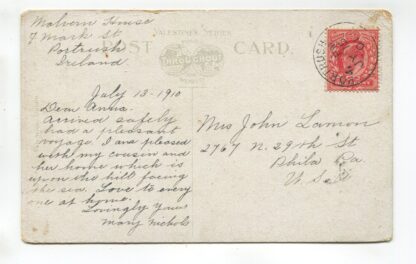 Malvern House
7 Mark St
Portrush
Ireland.
VALENTINE'S SERIES
POST CARD.
July 13-1910
Dear Anna.
Arrived safely
had a pleasant
voyage. I am pleased
with my cousin and
her home which is
upon the hill facing
the sea. Love to every
one at home.
Lovingly yours
Mary Nichols
PORTRUSH
Mrs John Lamon
2767 N. 29th St
Phila Pa
U.S.A